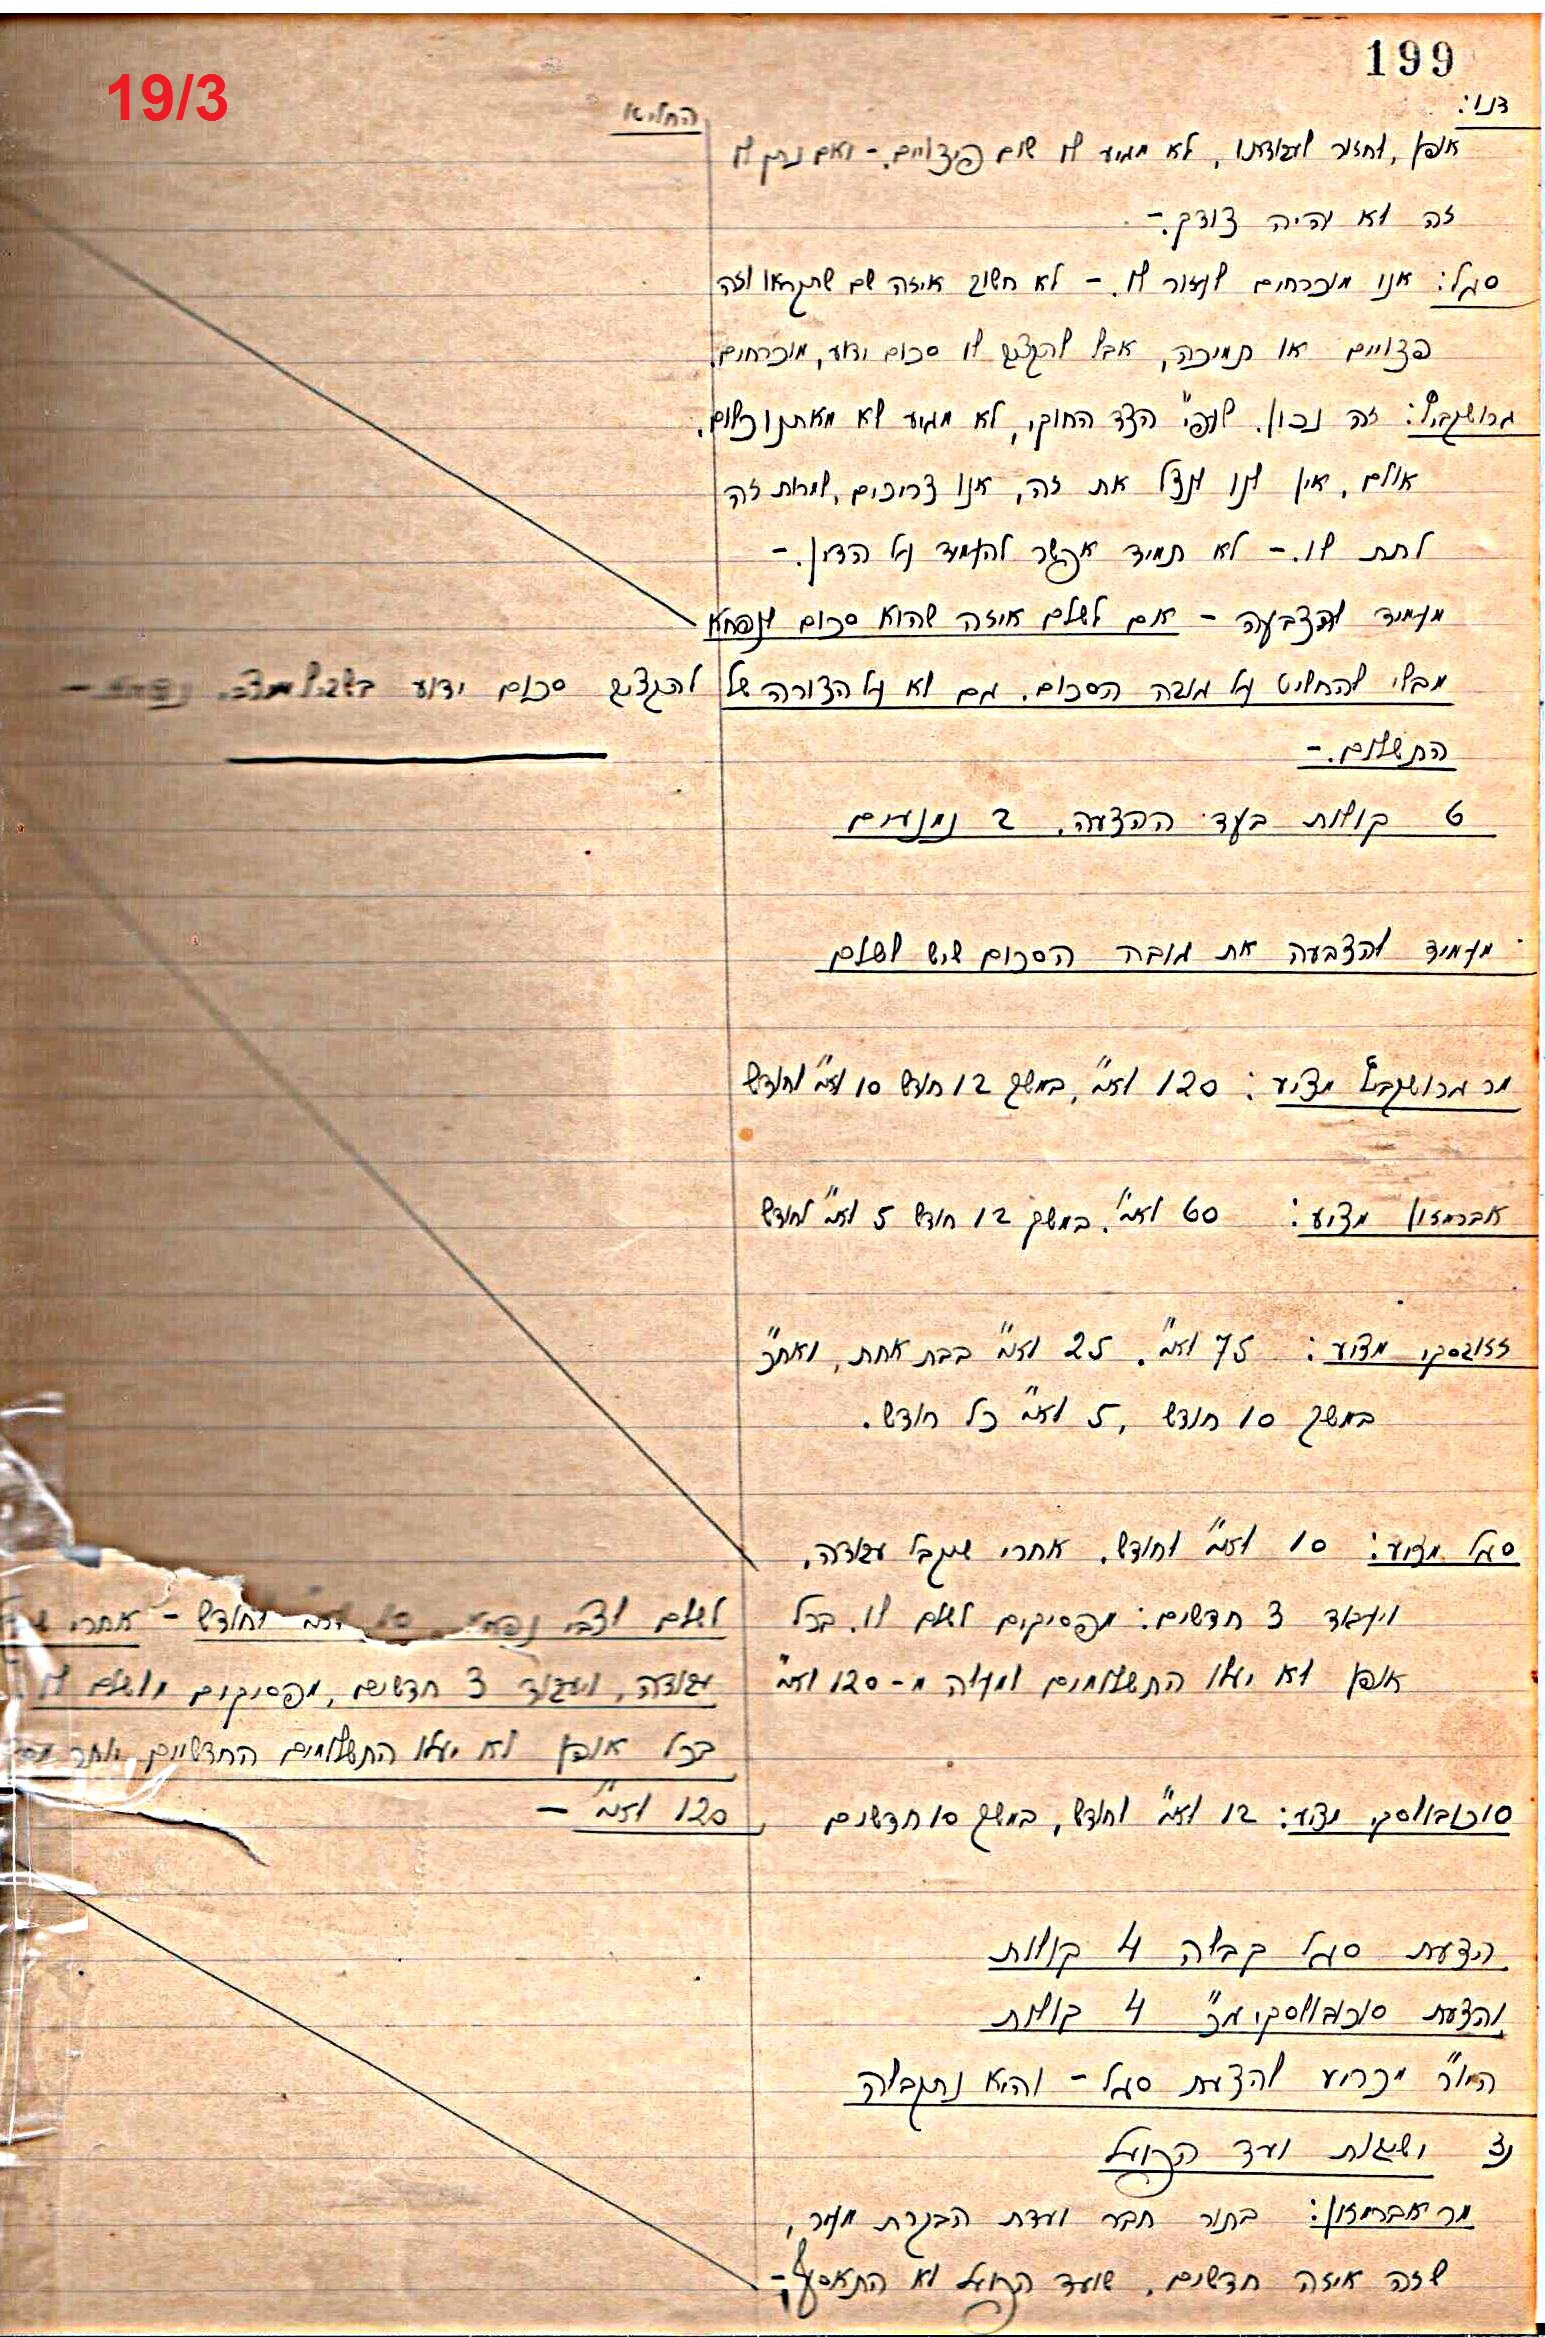 199
19/3
דנו:
החליטו
אופן, לחזור לעבודתו, לא מגיע לו שום פיצויים. - ואם נתן לו
זה לא יהיה צודק.-
סגל: אנו מוכרחים לעזור לו. - לא חשוב איזה שם שתקראו לזה
פצויים או תמיכה, אבל להקציב לו סכום ידוע, מוכרחים.
גרושקביץ: זה נכון. שעפ"י הצד החוקי, לא מגיע לא מאתנו כלום.
אולם, אין לנו לנצל את זה, אנו צריכים, למרות זה
לתת לו. - לא תמיד אפשר להעמיד על הדין. -
מעמיד להצבעה - אם לשלם איזה שהוא סכום לנפחא
מבלי להחליט על גובה הסכום. גם לא על הצורה של
התשלום. -
להקציב סכום ידוע בשביל
6 קולות בעד ההצעה. 2 נמנעים
מעמיד להצבעה את גובה הסכום שיש לשלם
מר גרושקביץ מציע: 120 לא"י, במשך 12 חודש 10 לא"י לחודש
אברמזון מציע: 60 לא"י. במשך 12 חודש 5 לא"י לחודש
מציע: 75 לא"י. 25 לא"י בבת אחת, ואח"כ
במשך 10 חודש, 5 לא"י כל חודש.
סגל מציע: 10 לא"י לחודש. אחרי שיקבל עבודה,
ויעבוד 3 חדשים: מפסיקים לשלם לו. בכל
אופן לא יעלו התשלומים למעלה מ-120 לא"י
לשלם לצבי נפחא 10 לא"י לחודש - אחרי
עבודה, ויעבוד 3 חדשים, מפסיקים לשלם לו
בכל אופן לא יעלו התשלומים החדשיים יותר
120 לא"י -
סוכובולסקי מציע: 12 לא"י לחודש, במשך 10 חדשים
הצעת סגל קבלה 4 קולות
והצעת סוכובולסקי ג"כ 4 קולות
היו"ר מכריע להצעת סגל - והיא נתקבלה
ישיבות ועד הפועל
מר אברמזון: בתור חבר ועדת הבקרת מעיר,
שזה איזה חדשים, שועד הפועל לא התאסף. -